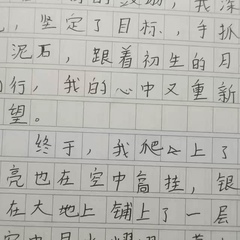 的鼓励，我深
，坚定了目标，手抓
泥石，跟着初生的月
行，我的心中又重新
望。
终于，我爬上了
亮也在空中高挂，银
在大地上铺上了一层